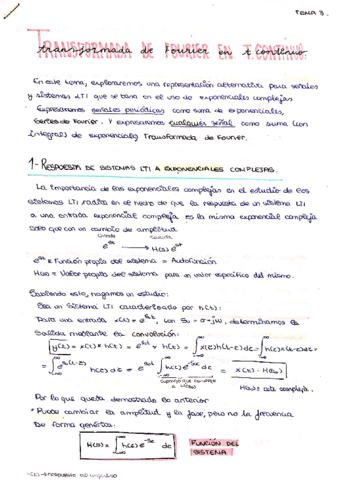 TEMA 3.
TRANSFORMADA DE FOURIER EN T. CONTINUO.
En este tema, exploraremos una representación alternativa para señales
y sistemas LTI que se basa en el uso de exponenciales complejas
Expresaremos señales periódicas como suma de exponenciales,
Series de Fourier. Y expresaremos cualquier señal como suma (con
integral) de exponenciales, Transformada de Fourier.
1- RESPUESTA DE SISTEMAS LTI A EXPONENCIALES COMPLEJAS.
La importancia de las exponenciales complejas en el estudio de los
sistemas LTI radica en el hecho de que la respuesta de un sistema LTI
a una entrada exponencial compleja es la misma exponencial compleja
solo que con un cambio de amplitud
e^st → H(s) e^st
e^st = Función propia del sistema = Autofunción
H(s) = Valor propio del sistema para un valor específico del mismo.
Sabiendo esto, hagamos un estudio:
Sea un Sistema LTI caracterizado por h(t):
Para una entrada x(t) = e^st, con determinamos la
Salida mediante la convolución:
y(t) = x(t) * h(t) = e^st * h(t) = ∫ x(τ) h(t-τ) dτ = ∫ h(τ) x(t-τ) dτ =
= ∫ e^s(t-τ) h(τ) dτ = e^st ∫ h(τ) e^-sτ dτ = x(t) · H(s)
Por lo que queda demostrado lo anterior
* Puede cambiar la amplitud y la fase, pero no la frecuencia
De forma genérica:
H(s) = ∫ h(τ) e^-sτ dτ
FUNCIÓN DEL
SISTEMA
h(t) → respuesta al impulso